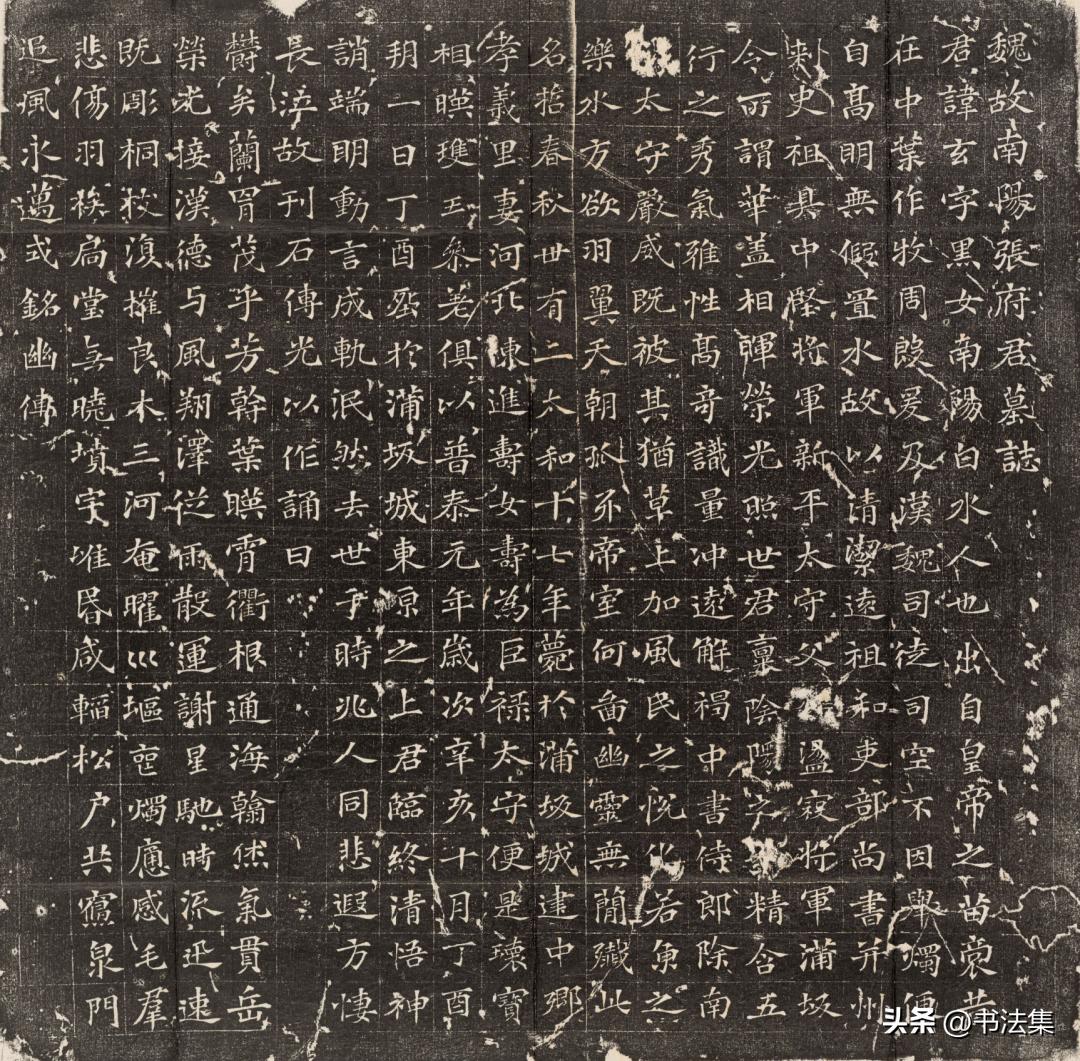 魏故南陽張府君墓誌
君諱玄字黑女南陽白水人也出自皇帝之苗裔昔
在中葉作牧周殷爰及漢魏司徒司空不因舉燭便
自高明無假置水故以清潔遠祖和吏部尚書并州
刾史祖具中堅將軍新平太守父盪寇將軍蒲坂
令所謂華盖相暉榮光照世君稟陰陽之精含五
行之秀氣雅性高奇識量沖遠解褐中書侍郎除南
太守嚴威既被其猶草上加風民之悅化若魚之
樂水方欲羽翼天朝抓牙帝室何啚幽靈無簡殲此
名哲春秋卅有二太和十七年薨於蒲坂城建中鄉
孝義里妻河北陳進壽女壽為巨祿太守便是瓌寶
相暎瓊玉參差俱以普泰元年歲次辛亥十月丁酉
朔一日丁酉塟於蒲坂城東原之上君臨終清悟神
誚端明動言成軌泯然去世于時兆人同悲遐方悽
長泣故刊石傳光以作誦曰
欝矣蘭胄茂乎芳幹葉暎霄衢根通海翰休氣貫岳
榮光接漢德与風翔澤從雨散運謝星馳時流迅速
既彫桐枝復摧良木三河奄曜巛塸喪燭痛感毛羣
悲傷羽族扃堂無曉墳宇唯昏咸輼松戶共寢泉門
追風永邁式銘幽傳
头条 @书法集